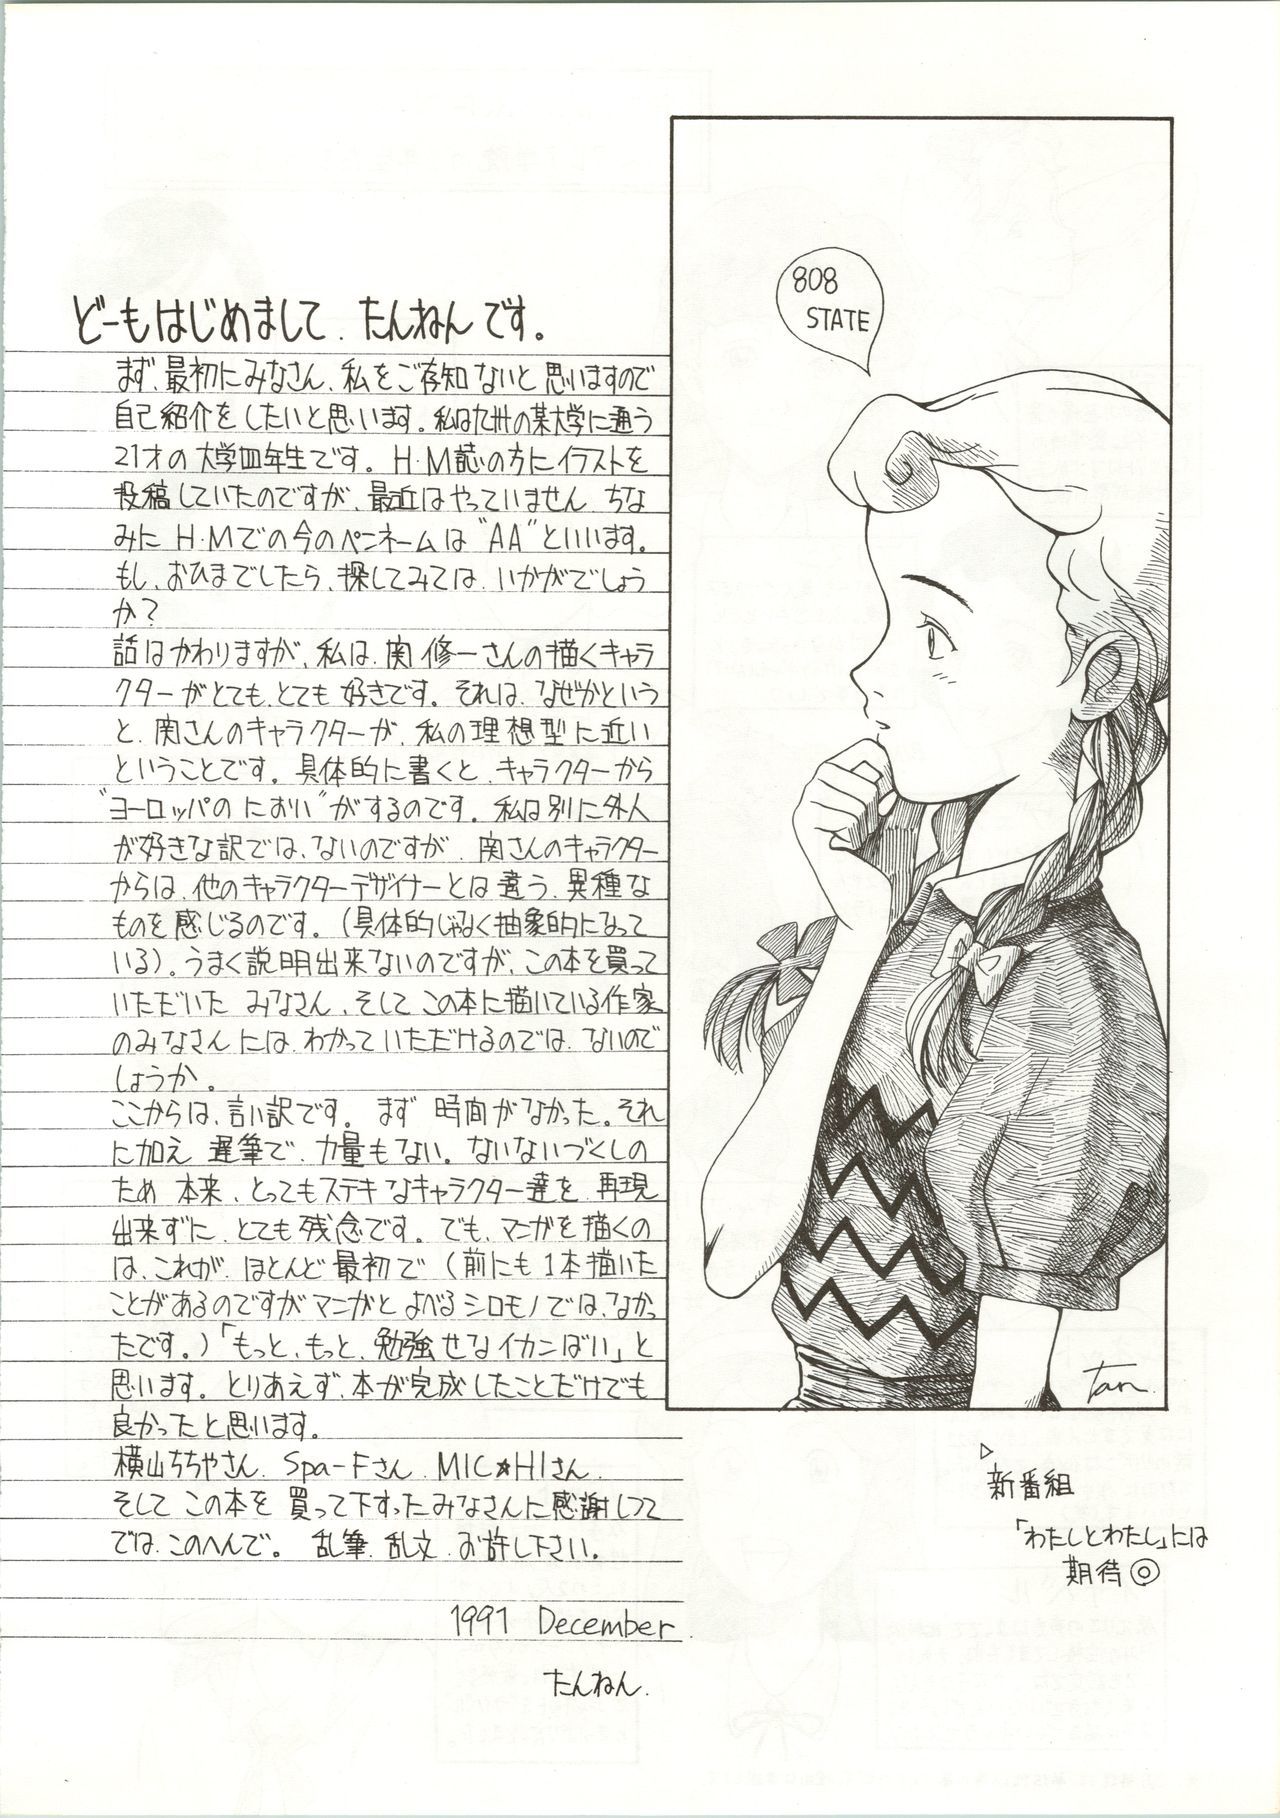 どーもはじめまして.たんねんです。
まず、最初にみなさん、私をご存知ないと思いますので
自己紹介をしたいと思います。私は九州の某大学に通う
21才の大学四年生です。H・M誌の方にイラストを
投稿していたのですが、最近はやっていません.ちな
みにH・Mでの今のペンネームは"AA"といいます。
もし、おひまでしたら、探してみては、いかがでしょう
か?
話はかわりますが、私は、関修一さんの描くキャラ
クターがとても、とても好きです。それは、なぜかという
と、関さんのキャラクターが、私の理想型に近い
ということです。具体的に書くと、キャラクターから
"ヨーロッパのにおい"がするのです。私は別に外人
が好きな訳では、ないのですが、関さんのキャラクター
からは、他のキャラクターデザイナーとは違う、異種な
ものを感じるのです。(具体的じゃなく抽象的になって
いる)。うまく説明出来ないのですが、この本を買って
いただいたみなさん、そしてこの本に描いている作家
のみなさんには、わかっていただけるのでは、ないので
しょうか。
ここからは、言い訳です。まず時間がなかった。それ
に加え遅筆で、力量もない。ないないづくしの
ため本来、とってもステキなキャラクター達を、再現
出来ずに、とても残念です。でも、マンガを描くの
は、これが、ほとんど最初で(前にも1本描いた
ことがあるのですがマンガとよべるシロモノでは、なかっ
たです。)「もっと、もっと、勉強せなイカンばい」と
思います。とりあえず、本が完成したことだけでも
良かったと思います。
横山ちちやさん、Spa-Fさん、MIC★HIさん、
そしてこの本を買って下すったみなさんに感謝しつつ
では、このへんで。乱筆、乱文、お許し下さい。
1991 December
たんねん.
808
STATE
tan.
▷
新番組
「わたしとわたし」には
期待◎